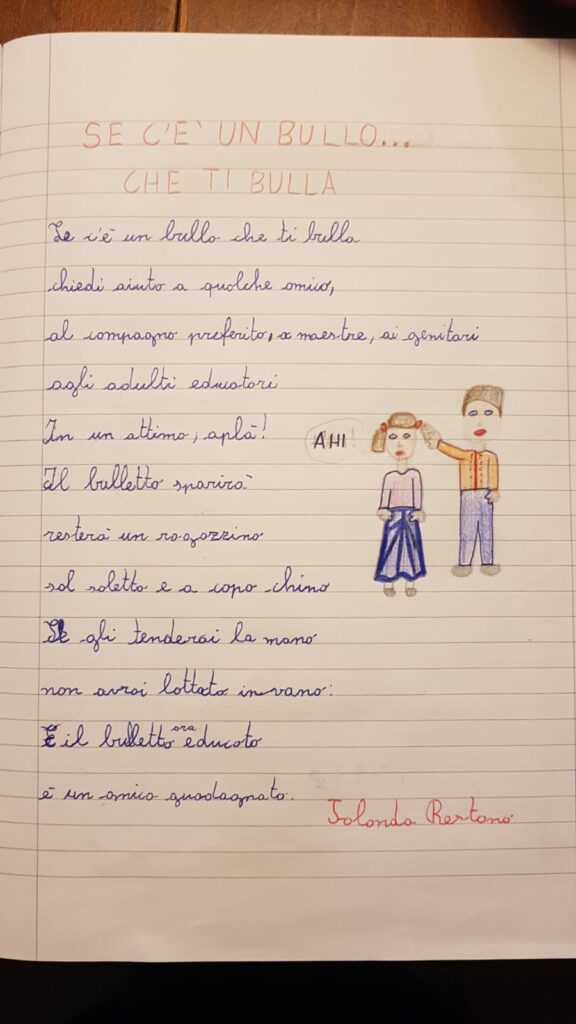 SE C'E' UN BULLO...
CHE TI BULLA
Se c'è un bullo che ti bulla
chiedi aiuto a qualche amico,
al compagno preferito, a maestre, ai genitori
agli adulti educatori
In un attimo, aplà!
Il bulletto sparirà
resterà un ragazzino
sol soletto e a capo chino
Se gli tenderai la mano
non avrai lottato invano:
E il bulletto ora educato
è un amico guadagnato.
AHI!
Jolanda Restano